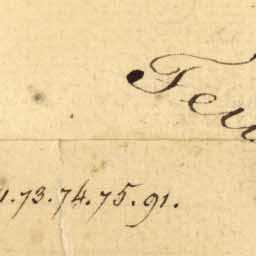 Feu
1.73.74.75.91.